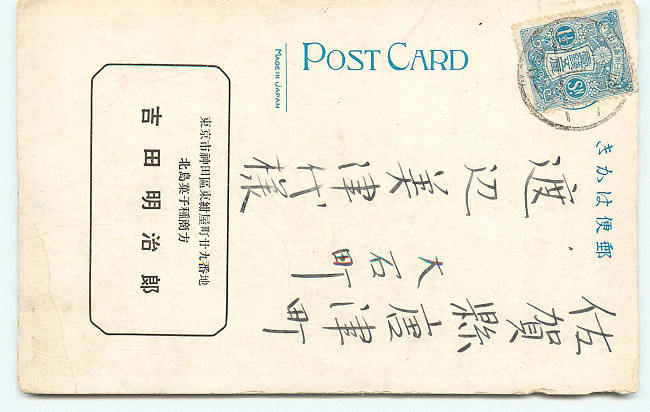 POST CARD
MADE IN JAPAN
郵便はかき
佐賀縣唐津町
大石町
渡辺美津代様
東京市神田區東紺屋町廿九番地
北島菓子種商方
吉田明治郎